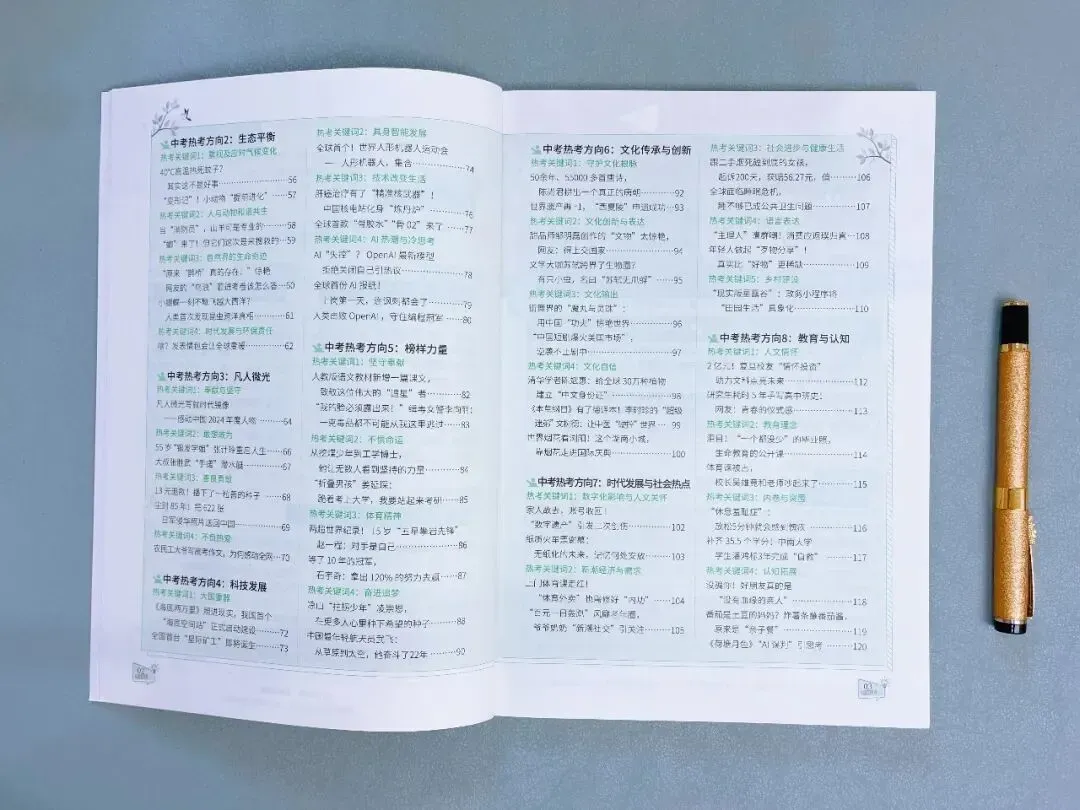 中考热考方向2：生态平衡
热考关键词1：景观及应对气候变化
40℃高温热死蚊子？
其实这不是好事……56
“变形记”！小动物“提前进化”……57
热考关键词2：人与动物和谐共生
当“消防员”，山羊可是专业的……58
“都”来了！但它们这次是来搬救的……59
热考关键词3：自然界的生命奇迹
“原来‘鹊桥’真的存在！”惊艳
网友的“鸟浪”
小蝴蝶一刻不歇飞越大西洋？
人类首次发现昆虫跨洋真相……61
热考关键词4：时代发展与环保责任
啥？发表情包会让全球变暖……62
中考热考方向3：凡人微光
热考关键词1：奉献与坚守
凡人微光写就时代镜像
——感动中国2024年度人物……64
热考关键词2：敢想敢为
55岁“银发学姐”张计玲重启人生……66
大叔张胜武“手搓”潜水艇……67
热考关键词3：善良勇敢
13元退款！播下了一粒善的种子……68
尘封85年！把622张
日军侵华照片送回中国……69
热考关键词4：不负热爱
农民工大爷写高考作文，为何感动全网……70
中考热考方向4：科技发展
热考关键词1：大国重器
《海底两万里》照进现实，我国首个
“海底空间站”正式启动建设……72
全国首台“星际矿工”即将诞生……73
热考关键词2：具身智能发展
全球首个！世界人形机器人运动会
— 人形机器人，集合……74
热考关键词3：技术改变生活
肝癌治疗有了“精准核武器”！
中国核电站化身“炼丹炉”……76
全球首款“骨胶水”“骨02”来了……77
热考关键词4：AI热潮与冷思考
AI“失控”？OpenAI最新模型
拒绝关闭自己引热议……78
全球首份AI报纸！
上岗第一天，连讽刺都会了……79
人类击败OpenAI，守住编程冠军……80
中考热考方向5：榜样力量
热考关键词1：坚守奉献
人教版语文教材新增一篇课文，
致敬这位伟大的“追星”者……82
“我的脸必须露出来！”缉毒女警李向钊：
一克毒品都不可能从我这里逃过……83
热考关键词2：不惧命运
从挖煤少年到工学博士，
他让无数人看到坚持的力量……84
“折叠男孩”姜延琛：
跪着考上大学，我要站起来考研……85
热考关键词3：体育精神
两超世界纪录！15岁“五星攀岩先锋”
赵一程：对手是自己……86
等了10年的冠军，
石宇奇：拿出120%的努力去赢……87
热考关键词4：奋进追梦
凉山“狂飙少年”凌崇思，
在更多人心里种下希望的种子……88
中国最年轻航天员武飞：
从草原到太空，他奋斗了22年……90
中考热考方向6：文化传承与创新
热考关键词1：守护文化根脉
50余年、55000多首唐诗，
陈尚君拼出一个真正的唐朝……92
世界遗产再+1，“西夏陵”申遗成功……93
热考关键词2：文化创新与表达
甜品师邹明磊创作的“文物”太惊艳，
网友：得上交国家……94
文学大咖苏轼跨界了生物圈？
有只小虫，名曰“苏轼无爪螨”……95
热考关键词3：文化输出
街舞界的“魔丸与灵珠”：
用中国“功夫”惊艳世界……96
“中国短剧爆火美国市场”，
逆袭不止剧中……97
热考关键词4：文化自信
清华学者陈运惠：给全球38万种植物
建立“中文身份证”……98
《本草纲目》有了德译本！李时珍的“超级
迷弟”文树德：让中医“破浔”世界……99
世界烟花看浏阳！这个湖南小城，
靠烟花走进国际庆典……100
中考热考方向7：时代发展与社会热点
热考关键词1：数字化影响与人文关怀
家人故去，账号收回！
“数字遗产”引发二次创伤……102
纸质火车票谢幕：
无纸化的未来，记忆何处安放……103
热考关键词2：新潮经济与需求
上门体育课走红！
“体育外卖”也需修好“内功”……104
“百元一日套餐”风靡老年圈，
爷爷奶奶“新潮社交”引关注……105
热考关键词3：社会进步与健康生活
跟二手烟死磕到底的女孩，
起诉200天，获赔56.27元，值……106
全球面临睡眠危机，
睡不够已成公共卫生问题……107
热考关键词4：语言表达
“主理人”遭群嘲！消费应返璞归真……108
年轻人做起“歹物分享”！
真实比“好物”更稀缺……109
热考关键词5：乡村建设
“现实版星露谷”：政务小程序将
“田园生活”具象化……110
中考热考方向8：教育与认知
热考关键词1：人文情怀
2亿元！复旦校友“情怀投资”
助力文科点亮未来……112
研究生耗时5年手写高中班史：
网友：青春的仪式感……113
热考关键词2：教育理念
泪目！“一个都没少”的毕业照，
生命教育的公开课……114
体育课被占，
校长吴维竟和老师吵起来了……115
热考关键词3：内卷与突围
“休息羞耻症”：
放松5分钟就会感到愧疚……116
补齐35.5个学分！中南大学
学生潘鸿标3年完成“自救”……117
热考关键词4：认知拓展
没骗你！好朋友真的是
“没有血缘的亲人”……118
番茄是土豆的妈妈？炸薯条蘸番茄酱，
原来是“亲子餐”……119
《荷塘月色》“AI误判”引思考……120
02
03